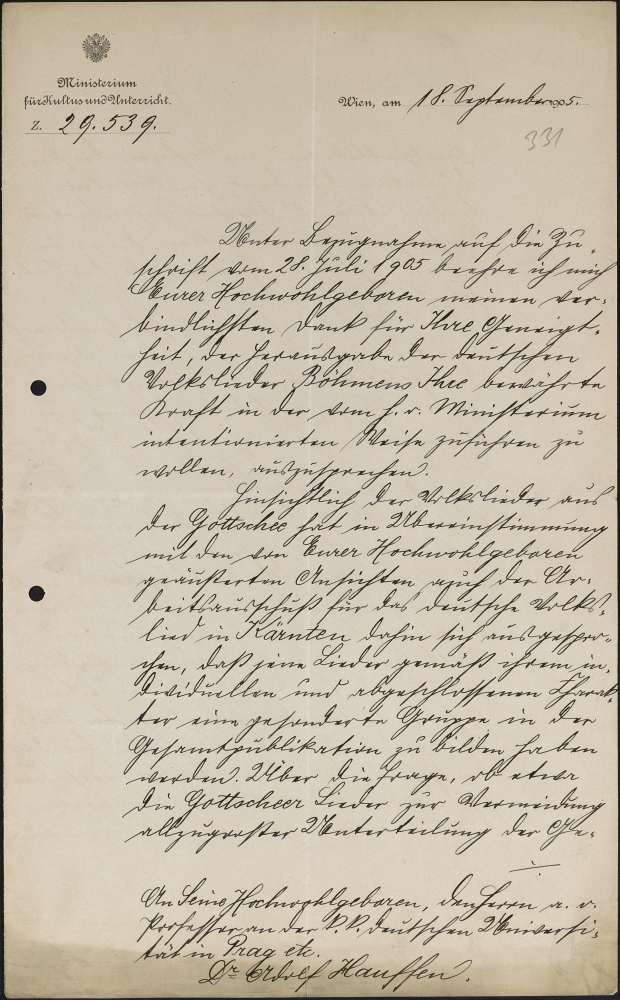 Ministerium
für Kultus und Unterricht.
Z. 29.539.
Wien, am 18. September 1905.
331
Unter Bezugnahme auf die Zu-
schrift vom 28. Juli 1905 beehre ich mich
Eurer Hochwohlgeboren meinen ver-
bindlichsten Dank für Ihre Geneigt-
heit, der Herausgabe der deutschen
Volkslieder Böhmens Ihre bewährte
Kraft in der vom h. o. Ministerium
intentionierten Weise zuführen zu
wollen, auszusprechen.
Hinsichtlich der Volkslieder aus
der Gottschee hat in Übereinstimmung
mit den von Eurer Hochwohlgeboren
geäußerten Ansichten auch der Ar-
beitsausschuß für das deutsche Volks-
lied in Kärnten dahin sich ausgespro-
chen, daß jene Lieder gemäß ihrem in-
dividuellen und abgeschlossenen Charak-
ter eine gesonderte Gruppe in der
Gesamtpublikation zu bilden haben
werden. Über die Frage, ob etwa
die Gottscheer Lieder zur Vermeidung
allzugroßer Unterteilung der Ge-
./.
An Seine Hochwohlgeboren, den Herrn a. o.
Professor an der k. k. deutschen Universi-
tät in Prag etc.
Dr Adolf Hauffen.